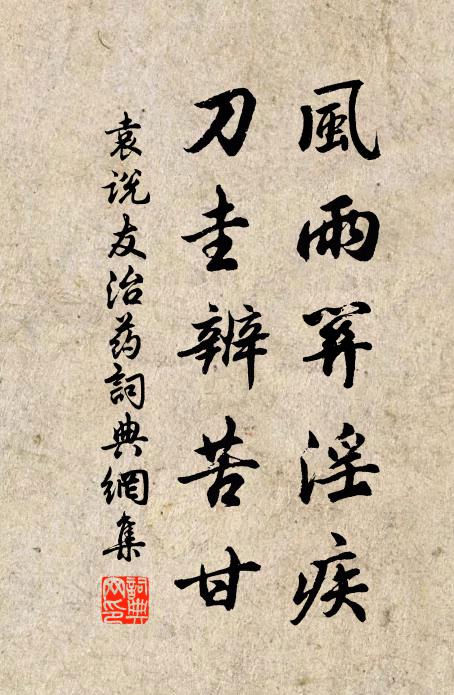 風雨淫疾
刀圭辨苦甘
袁说友治药詞典網集
詞典网印